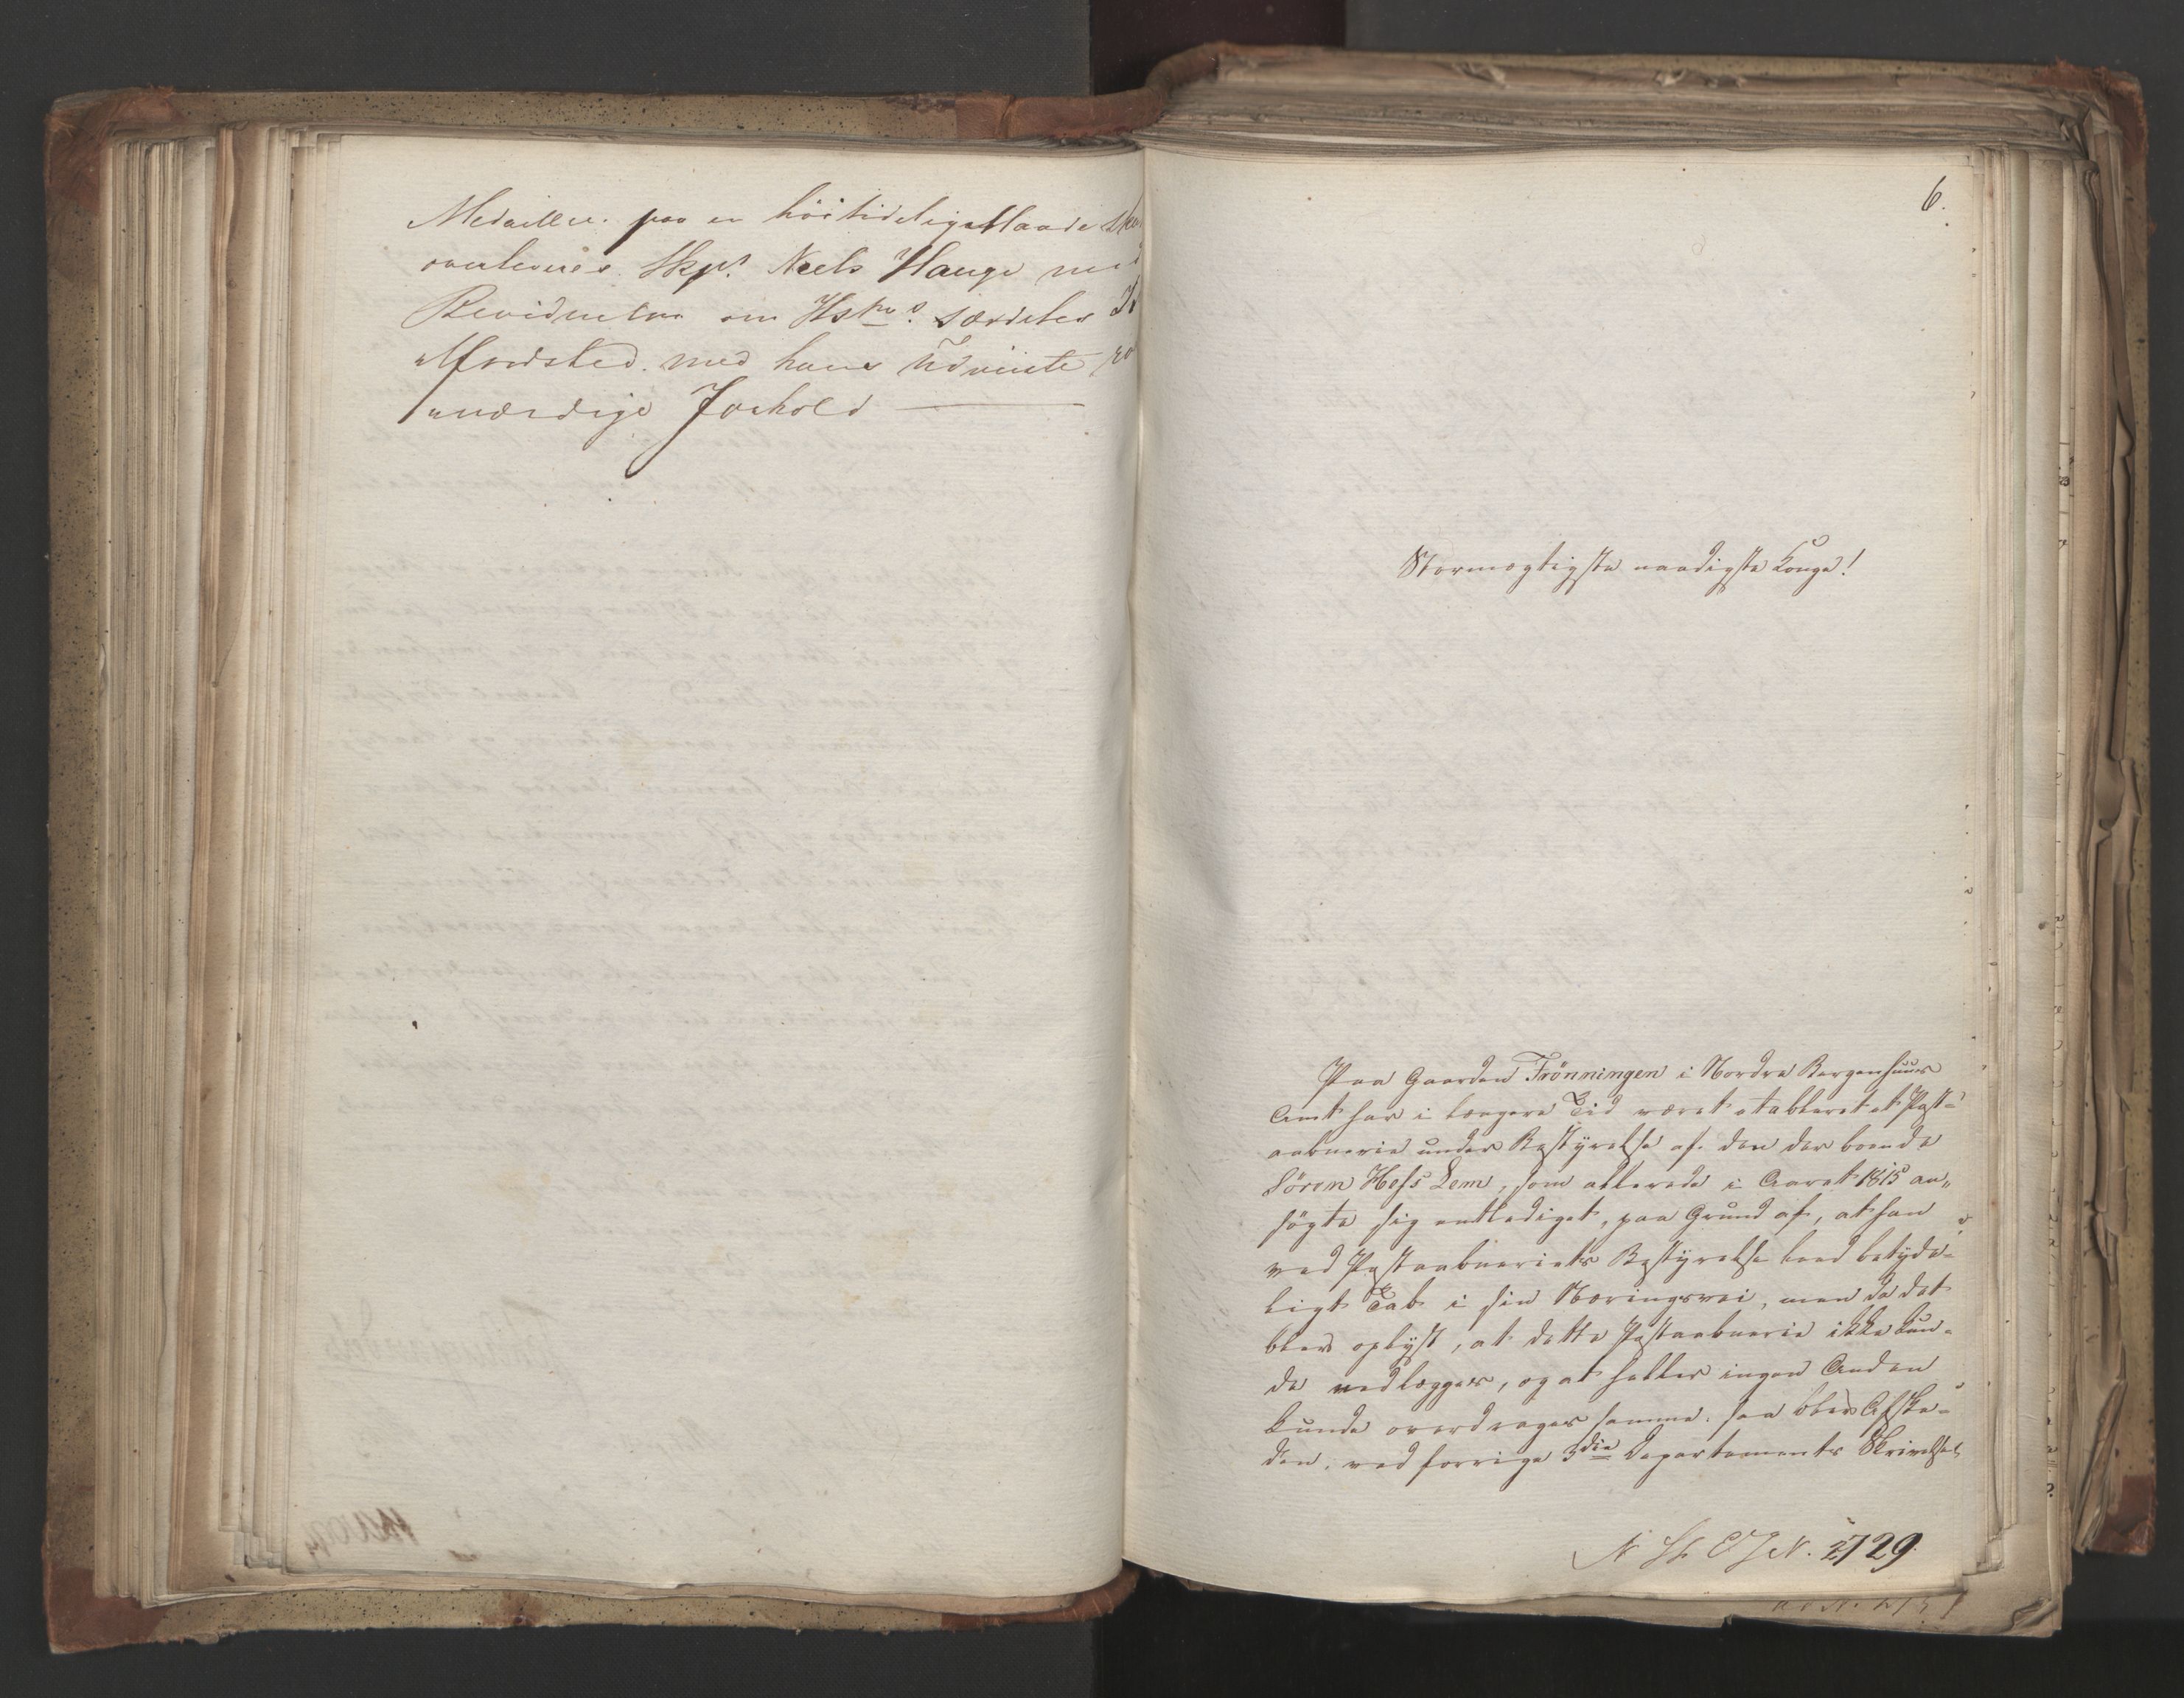 Medaille. paa en höitidelig Maade
overleveres Skpr. Neels Hauge med
Bevidnelse om Høistsammes særdeles
Tilfredshed med hans Udviiste
værdige Forhold
6.
Stormægtigste naadigste Konge!
Paa Gaarden Frönningen i Nordre Bergenhuus
Amt har i længere Tid været etableret et Post=
aabnerie under Bestyrelse af den der boende
Sören Hess Lem, som allerede i Aaret 1815 an„
søgte sig entlediget, paa Grund af, at han
ved Postaabneriets Bestyrelse leed betyde=
ligt Tab i sin Næringsvei, men da det
blev oplyst, at dette Postaabnerie ikke kun=
de nedlægges, og at heller ingen Anden
kunde overdrages samme, saa blev Afske=
den, ved forrige 3die Departements Skrivelse
N. 2729